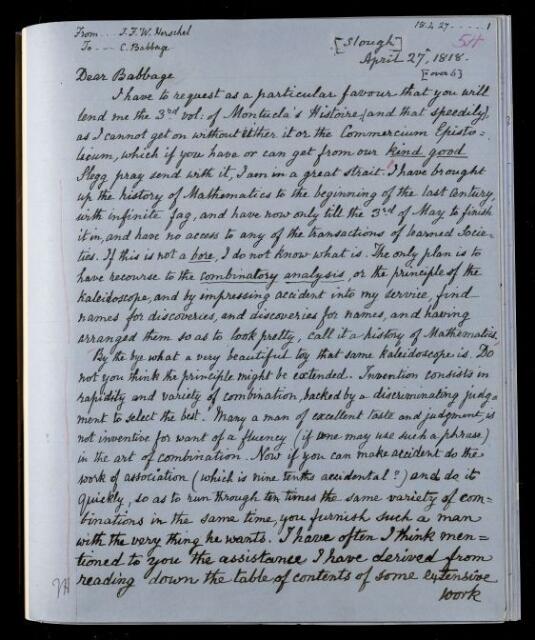 From ... J.F.W. Herschel
To ... C. Babbage
18.4.27 ..... 1
54
[Slough]
April 27th, 1818.
[over 6]
Dear Babbage
I have to request as a particular favour that you will
lend me the 3rd vol: of Montucla's Histoire, [and that speedily],
as I cannot get on without either it or the Commercium Episto-
licum, which if you have or can get from our kind good
Slegg pray send with it, I am in a great strait. I have brought
up the history of Mathematics to the beginning of the last Century,
with infinite fag, and have now only till the 3rd of May to finish
it in, and have no access to any of the transactions of learned Socie-
ties. If this is not a bore, I do not know what is. The only plan is to
have recourse to the combinatory analysis, or the principle of the
kaleidoscope, and by impressing accident into my service, find
names for discoveries, and discoveries for names, and having
arranged them so as to look pretty, call it a history of Mathematics.
By the bye what a very beautiful toy that same kaleidoscope is. Do
not you think the principle might be extended. Invention consists in
rapidity and variety of combination, backed by a discriminating judg-
ment to select the best. Many a man of excellent taste and judgment, is
not inventive for want of a fluency (if one may use such a phrase)
in the art of combination. Now if you can make accident do the
work of association (which is nine tenths accidental?) and do it
quickly, so as to run through ten times the same variety of com=
binations in the same time, you furnish such a man
with the very thing he wants. I have often I think men=
tioned to you the assistance I have derived from
reading down the table of contents of some extensive
work